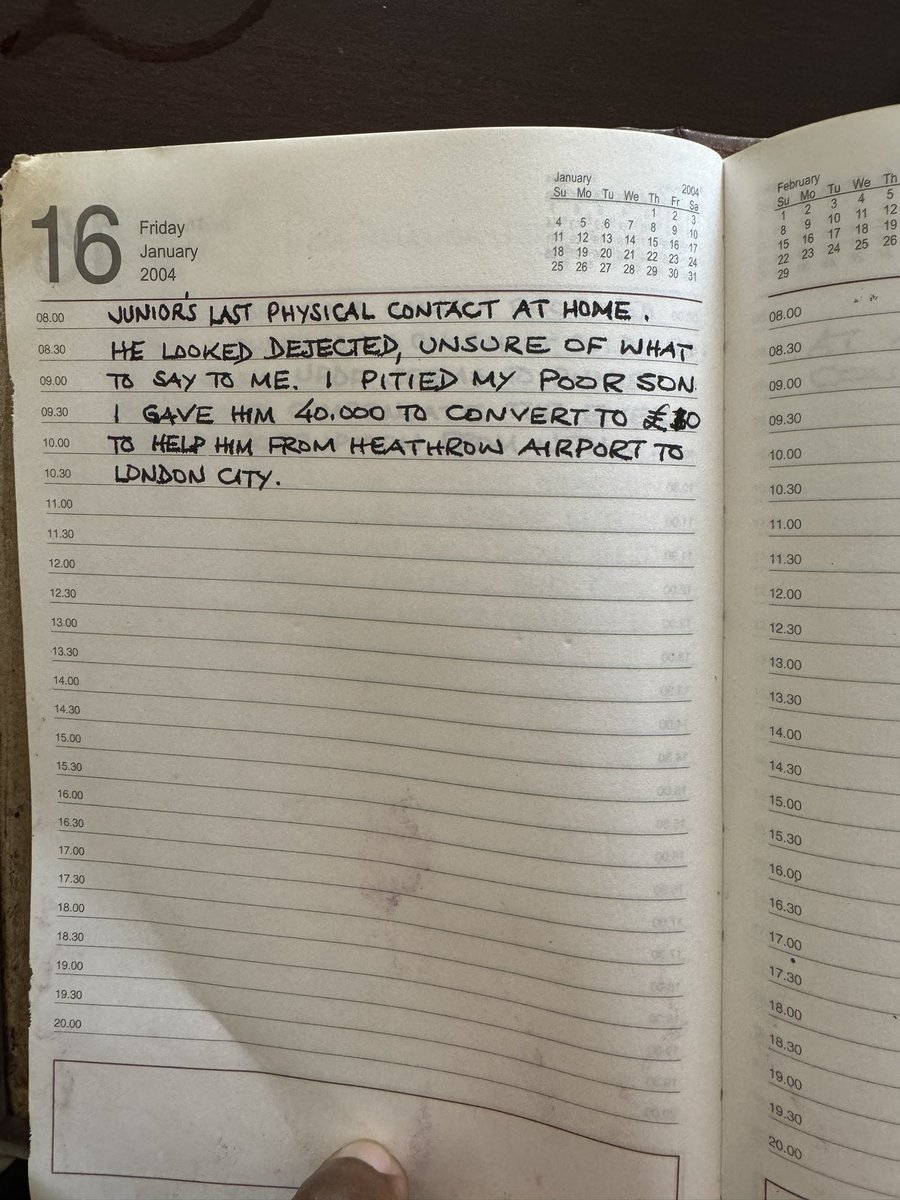 16
Friday
January
2004
January 2004
Su Mo Tu We Th Fr Sa
1 2 3
4 5 6 7 8 9 10
11 12 13 14 15 16 17
18 19 20 21 22 23 24
25 26 27 28 29 30 31
08.00 JUNIOR'S LAST PHYSICAL CONTACT AT HOME.
08.30 HE LOOKED DEJECTED, UNSURE OF WHAT
09.00 TO SAY TO ME. I PITIED MY POOR SON.
09.30 I GAVE HIM 40.000 TO CONVERT TO
10.00 TO HELP HIM FROM HEATHROW AIRPORT TO
10.30 LONDON CITY.
11.00
11.30
12.00
12.30
13.00
13.30
14.00
14.30
15.00
15.30
16.00
16.30
17.00
17.30
18.00
18.30
19.00
19.30
20.00
February
Su Mo Tu We Th
1 2 3 4 5
8 9 10 11 12
15 16 17 18 19
22 23 24 25 26
29
08.00
08.30
09.00
09.30
10.00
10.30
11.00
11.30
12.00
12.30
13.00
13.30
14.00
14.30
15.00
15.30
16.00
16.30
17.00
17.30
18.00
18.30
19.00
19.30
20.00